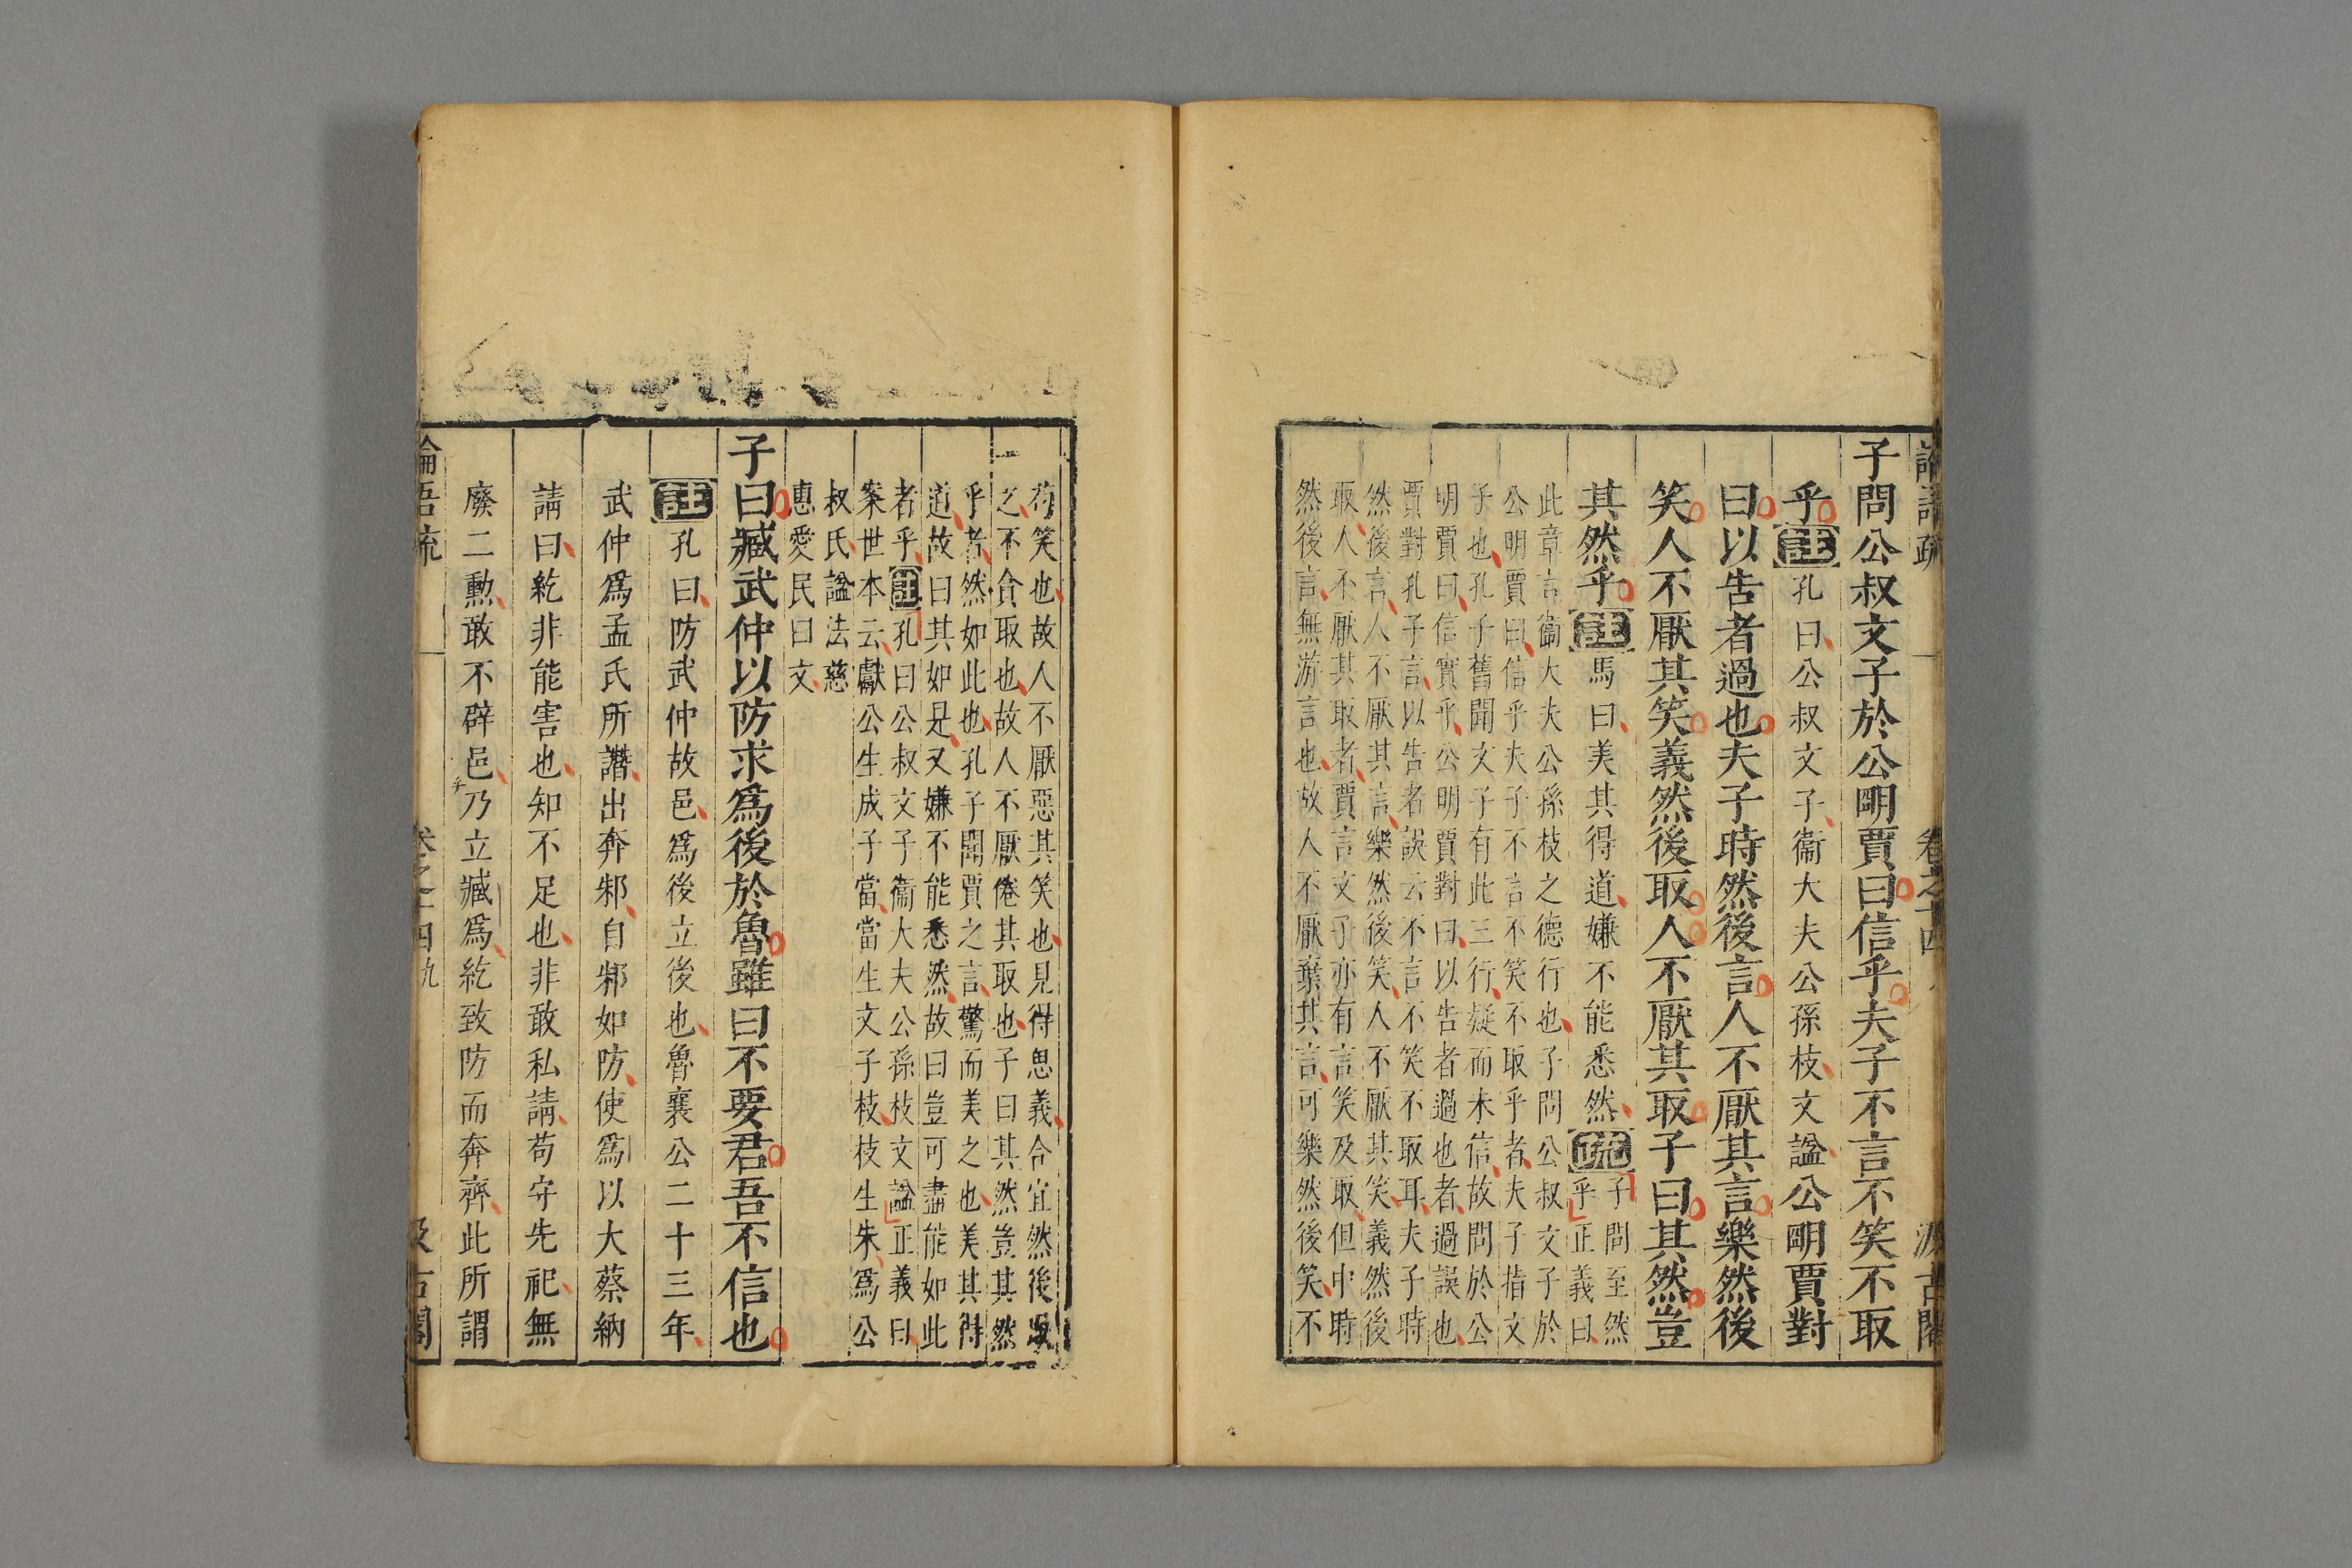 子問公叔文子於公明賈曰信乎夫子不言不笑不取
乎註孔曰公叔文子衞大夫公孫枝文諡公明賈對
曰以告者過也夫子時然後言人不厭其言樂然後
笑人不厭其笑義然後取人不厭其取子曰其然豈
其然乎註馬曰美其得道嫌不能悉然疏子問至然
乎正義曰
此章言衞大夫公孫枝之德行也子問公叔文子於
公明賈曰信乎夫子不言不笑不取乎者夫子指文
子也孔子舊聞文子有此三行疑而未信故問於公
明賈曰信實乎公明賈對曰以告者過也者過誤也
賈對孔子言以告者誤云不言不笑不取耳夫子時
然後言人不厭其言樂然後笑人不厭其笑義然後
取人不厭其取者賈言文子亦有言笑及取但中時
然後言無游言也故人不厭棄其言可樂然後笑不
苟笑也故人不厭惡其笑也見得思義合宜然後取
之不貪取也故人不厭倦其取也子曰其然豈其然
乎者然如此也孔子聞賈之言驚而美之也美其得
道故曰其如是又嫌不能悉然故曰豈可盡能如此
者乎註孔曰公叔文子衞大夫公孫枝文諡正義曰
案世本云獻公生成子當當生文子枝枝生朱爲公
叔氏諡法慈
惠愛民曰文
子曰臧武仲以防求爲後於魯雖曰不要君吾不信也
註孔曰防武仲故邑爲後立後也魯襄公二十三年
武仲爲孟氏所譖出奔邾自邾如防使爲以大蔡納
請曰紇非能害也知不足也非敢私請苟守先祀無
廢二勳敢不辟邑乃立臧爲紇致防而奔齊此所謂
論語疏 卷之十四 九 汲古閣